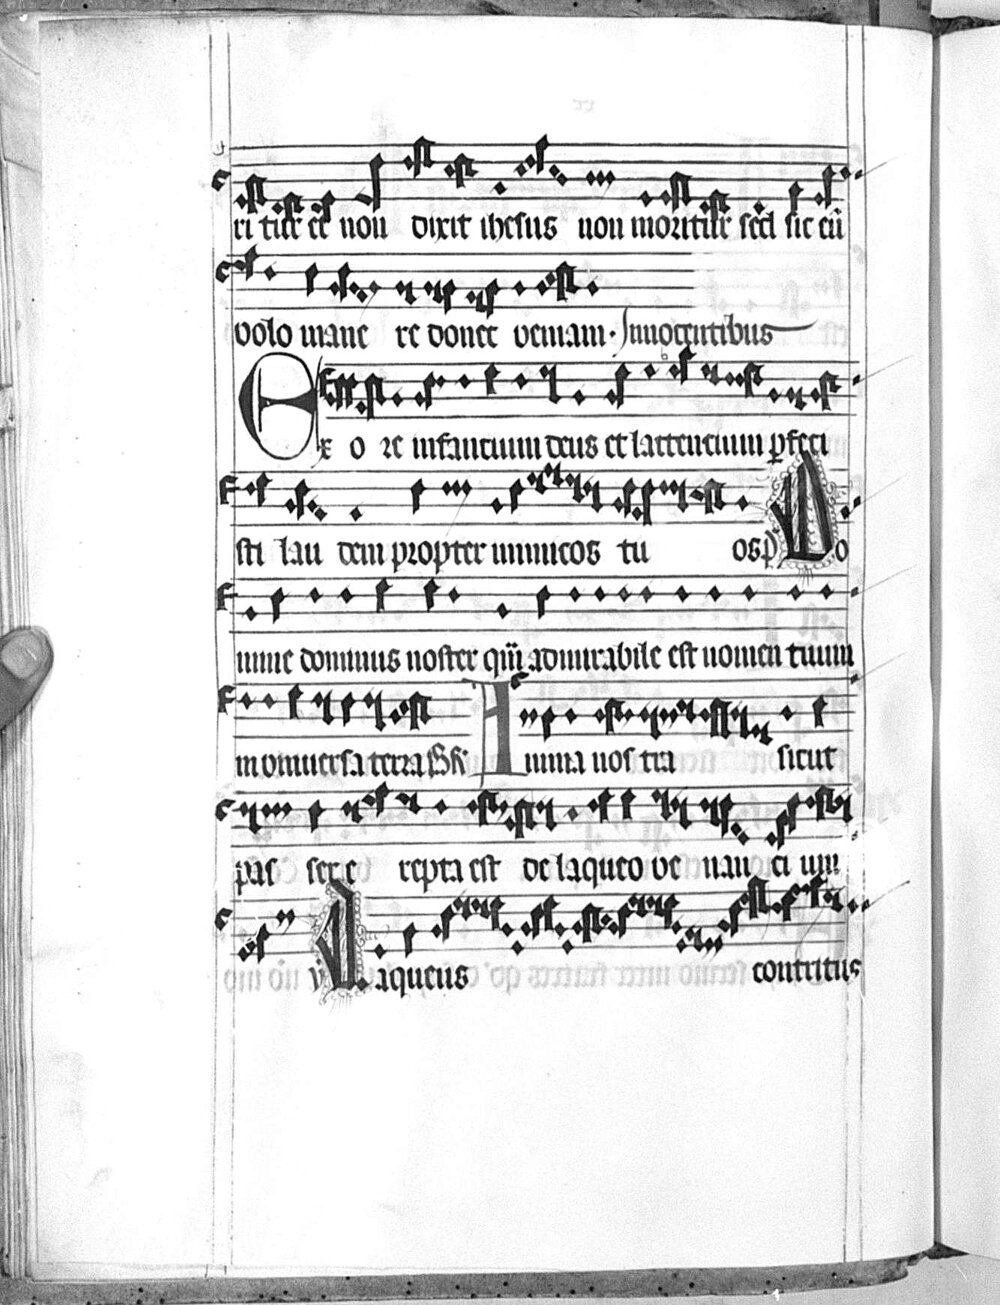 ri tur et non dixit ihesus non moritur sed sic eū
volo mane re donec veniam · Innocentibus
Ex o re infancium deus et lactencium ꝑfeci
sti lau dem propter inimicos tu os p̄ Do
mine dominus noster qm̄ admirabile est nomen tuum
in vniuersa terra Gͬ Anima nos tra sicut
pas ser e repta est de laqueo ve nan ci um
v̄ Laqueus contritus